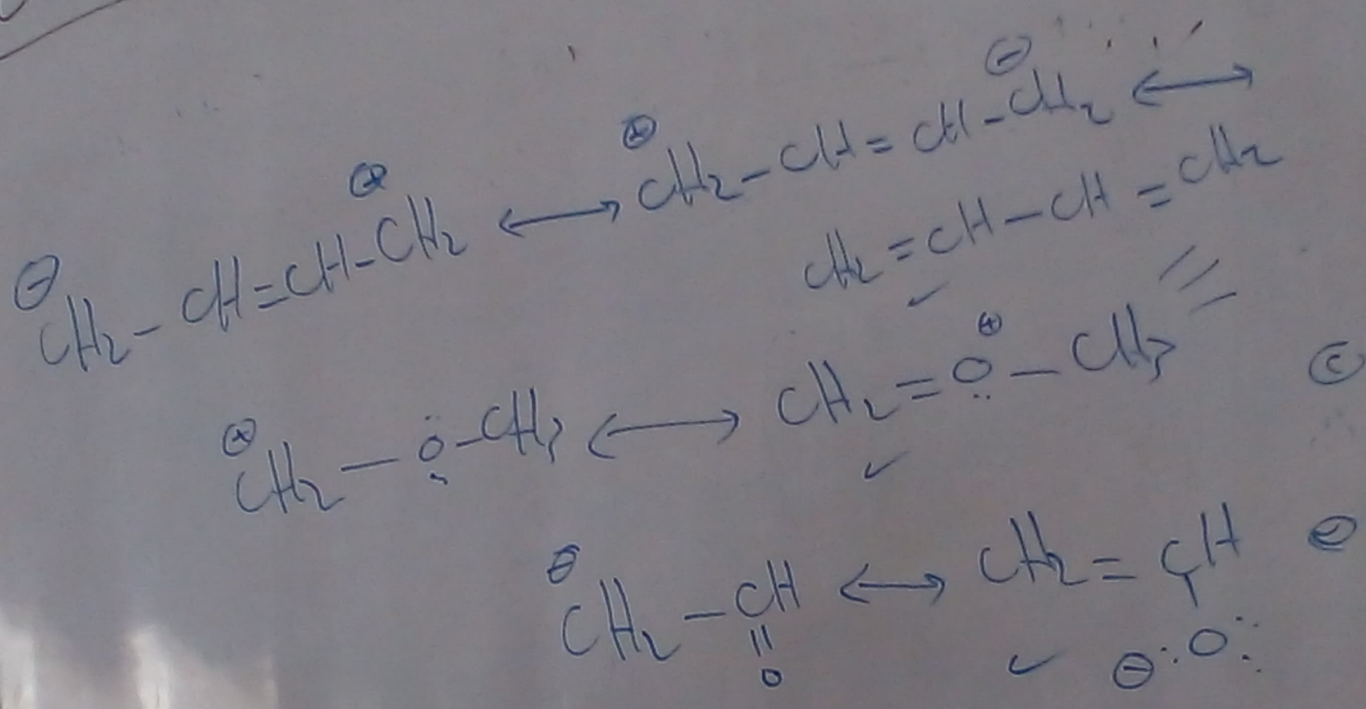 ⊖CH₂-CH=CH-CH₂⊕ ⟷ ⊕CH₂-CH=CH-CH₂⊖ ⟷
CH₂=CH-CH=CH₂ ✓
⊕CH₂-Ö-CH₃ ⟷ CH₂=O⊕-CH₃ ✓ ⓒ
⊖CH₂-CH=O ⟷ CH₂=CH-O:⊖ ✓